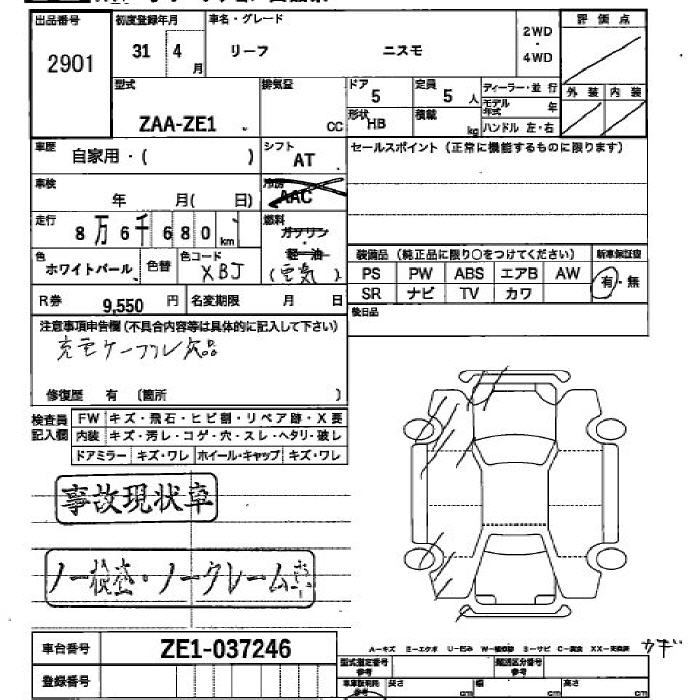 出品番号 初度登録年月 車名・グレード 評価点
2901 31 4月 リーフ ニスモ 2WD・4WD
外装 内装
型式 排気量 ドア 定員 ディーラー・並行
ZAA-ZE1 CC 5 5人 モデル年式 年
形状 HB 積載 kg ハンドル 左・右
車歴 自家用・( ) シフト AT セールスポイント(正常に機能するものに限ります)
車検 年 月( 日) 冷房 AAC
走行 8万6千680km 燃料 ガソリン 軽油 (電気)
色 ホワイトパール 色替 色コード XBJ
装備品(純正品に限り○をつけてください) 新車保証書
PS PW ABS エアB AW 有・無
SR ナビ TV カワ
R券 9,550円 名変期限 月 日 後日品
注意事項申告欄(不具合内容等は具体的に記入して下さい)
充電ケーブル欠品
修復歴 有 (箇所 )
検査員記入欄 FW キズ・飛石・ヒビ割・リペア跡・X要
内装 キズ・汚レ・コゲ・穴・スレ・ヘタリ・破レ
ドアミラー キズ・ワレ ホイール・キャップ キズ・ワレ
事故現状車
ノー検査・ノークレーム
車台番号 ZE1-037246
A-キズ E-エクボ U-凹み W-補修跡 S-サビ C-腐食 XX-交換済
カギ
登録番号 型式指定番号参考 類別区分番号参考
長さ cm 幅 cm 高さ cm